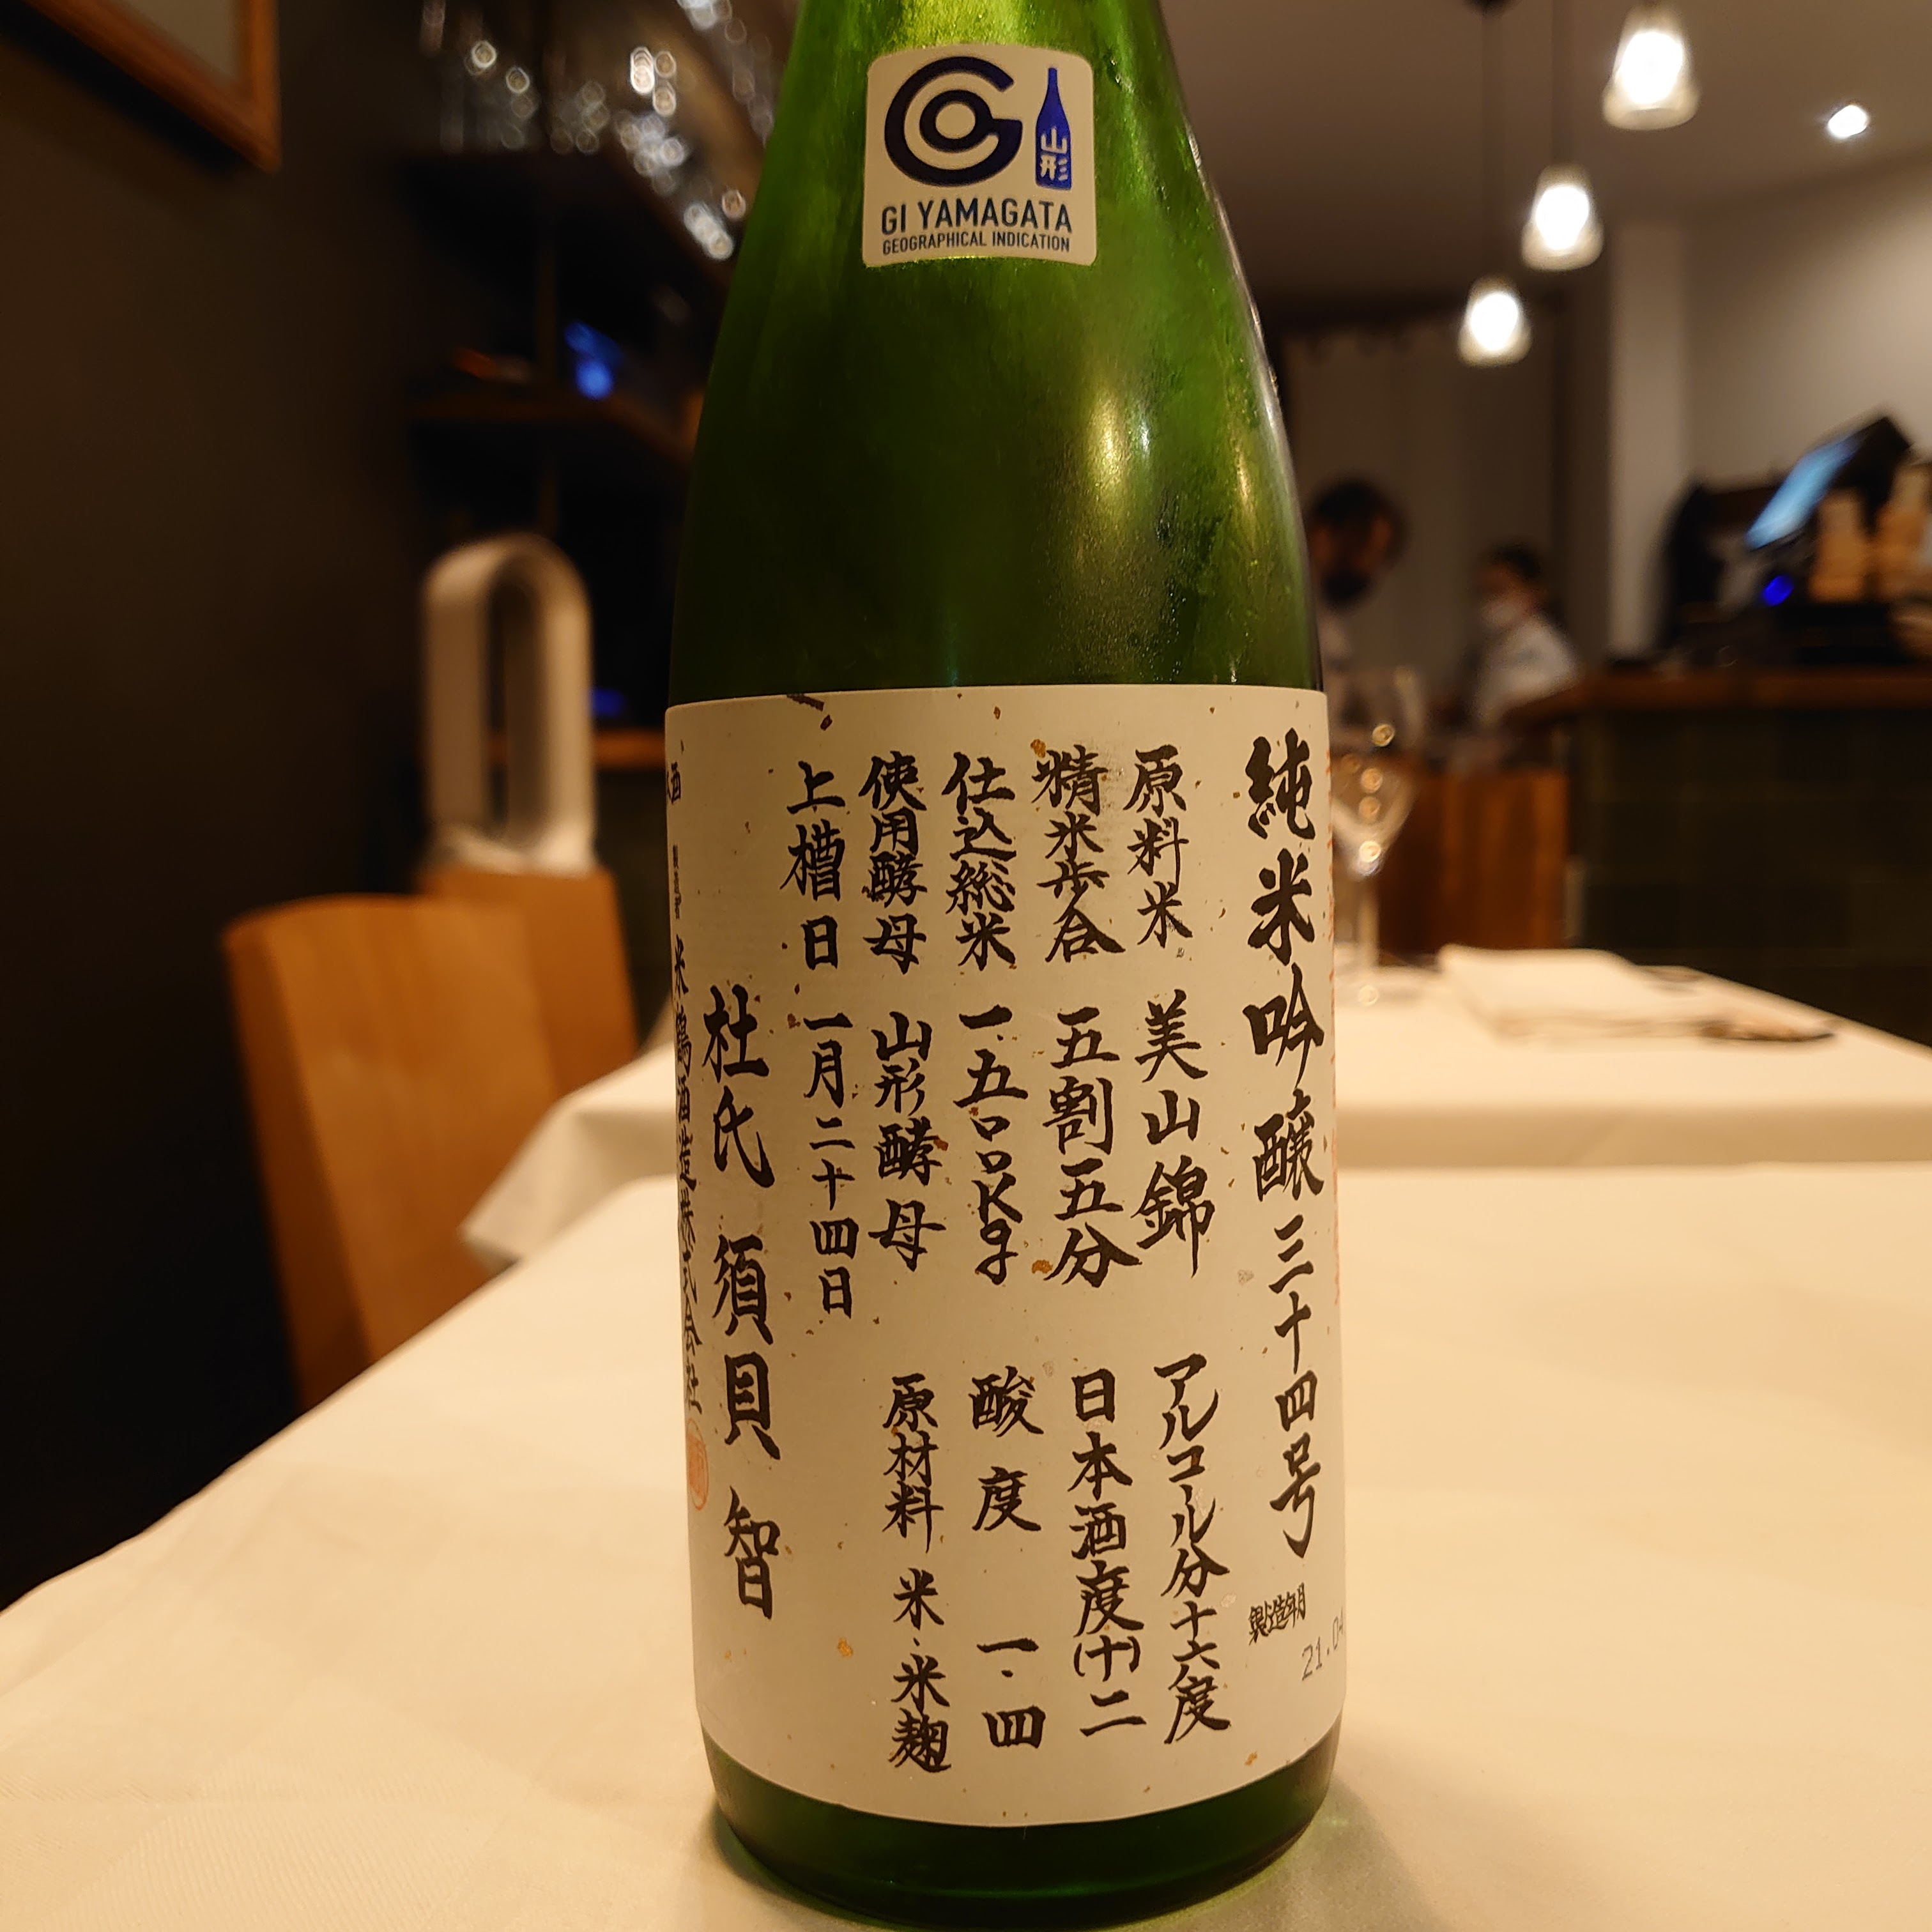 山形
GI YAMAGATA
GEOGRAPHICAL INDICATION
純米吟醸三十四号
製造年月
21.04
原料米 美山錦 アルコール分十六度
精米歩合 五割五分 日本酒度(十)二
仕込総米 一五〇〇Kg 酸度 一.四
使用酵母 山形酵母 原材料 米、米麹
上槽日 一月二十四日
杜氏 須貝 智
米鶴酒造株式会社